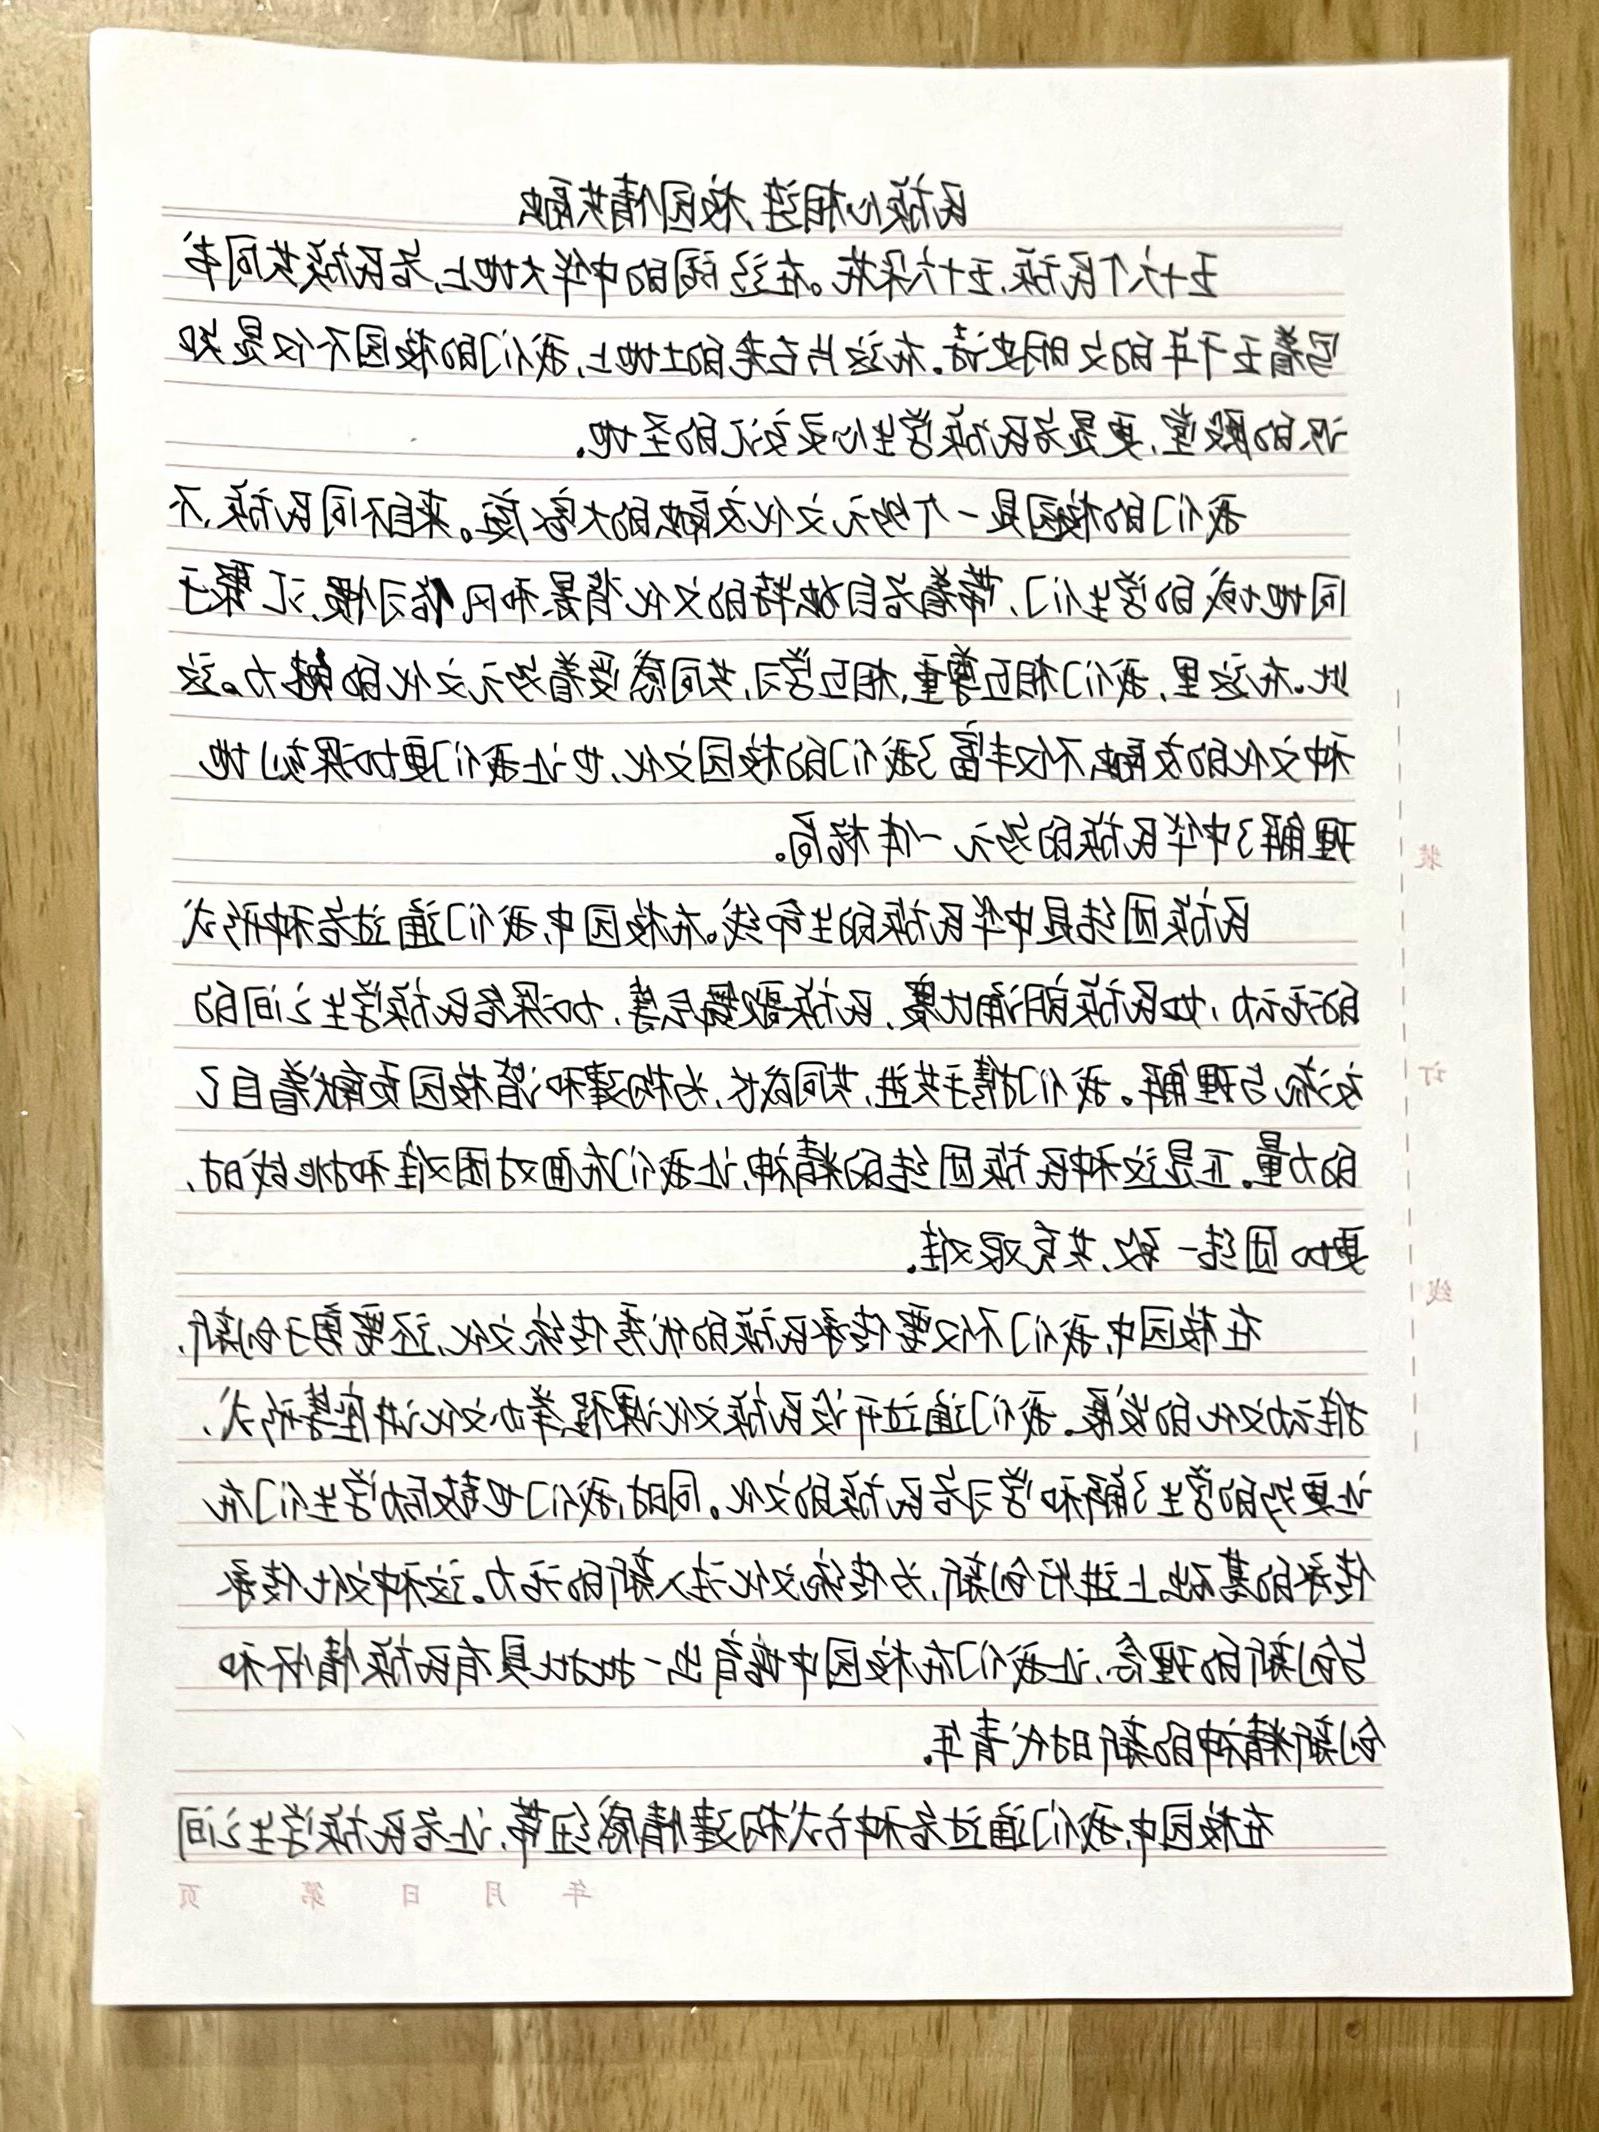 民族心相连,校园情共融
五十六个民族,五十六朵花。在辽阔的中华大地上,各民族共同书
写着五千年的文明史诗。在这片古老的土地上,我们的校园不仅是知
识的殿堂,更是各民族学生心灵交汇的圣地。
我们的校园是一个多元文化交融的大家庭。来自不同民族,不
同地域的学生们,带着各自独特的文化背景和风俗习惯,汇聚于
此。在这里,我们相互尊重,相互学习,共同感受着多元文化的魅力。这
种文化的交融不仅丰富了我们的校园文化,也让我们更加深刻地
理解了中华民族的多元一体格局。
民族团结是中华民族的生命线。在校园中,我们通过各种形式
的活动,如民族朗诵比赛、民族歌舞尽等,加深各民族学生之间的
交流与理解。我们携手共进,共同成长,为构建和谐校园贡献着自己
的力量。正是这种民族团结的精神,让我们在面对困难和挑战时,
更加团结一致,共克艰难。
在校园中,我们不仅要传承民族的优秀传统文化,还要勇于创新,
推动文化的发展。我们通过开设民族文化课程,举办文化讲座等形式,
让更多的学生了解和学习各民族的文化。同时,我们也鼓励学生们在
传承的基础上进行创新,为传统文化注入新的活力。这种文化传承
与创新的理念,让我们在校园中培育出一批批具有民族情怀和
创新精神的新时代青年。
在校园中,我们通过各种方式构建情感纽带,让各民族学生之间
年 月 日 第 页
装
订
线